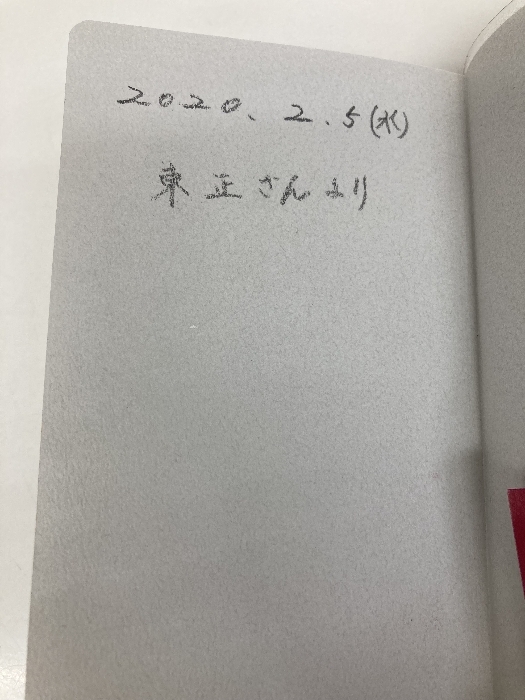 2020. 2. 5 (水)
東 正さんより